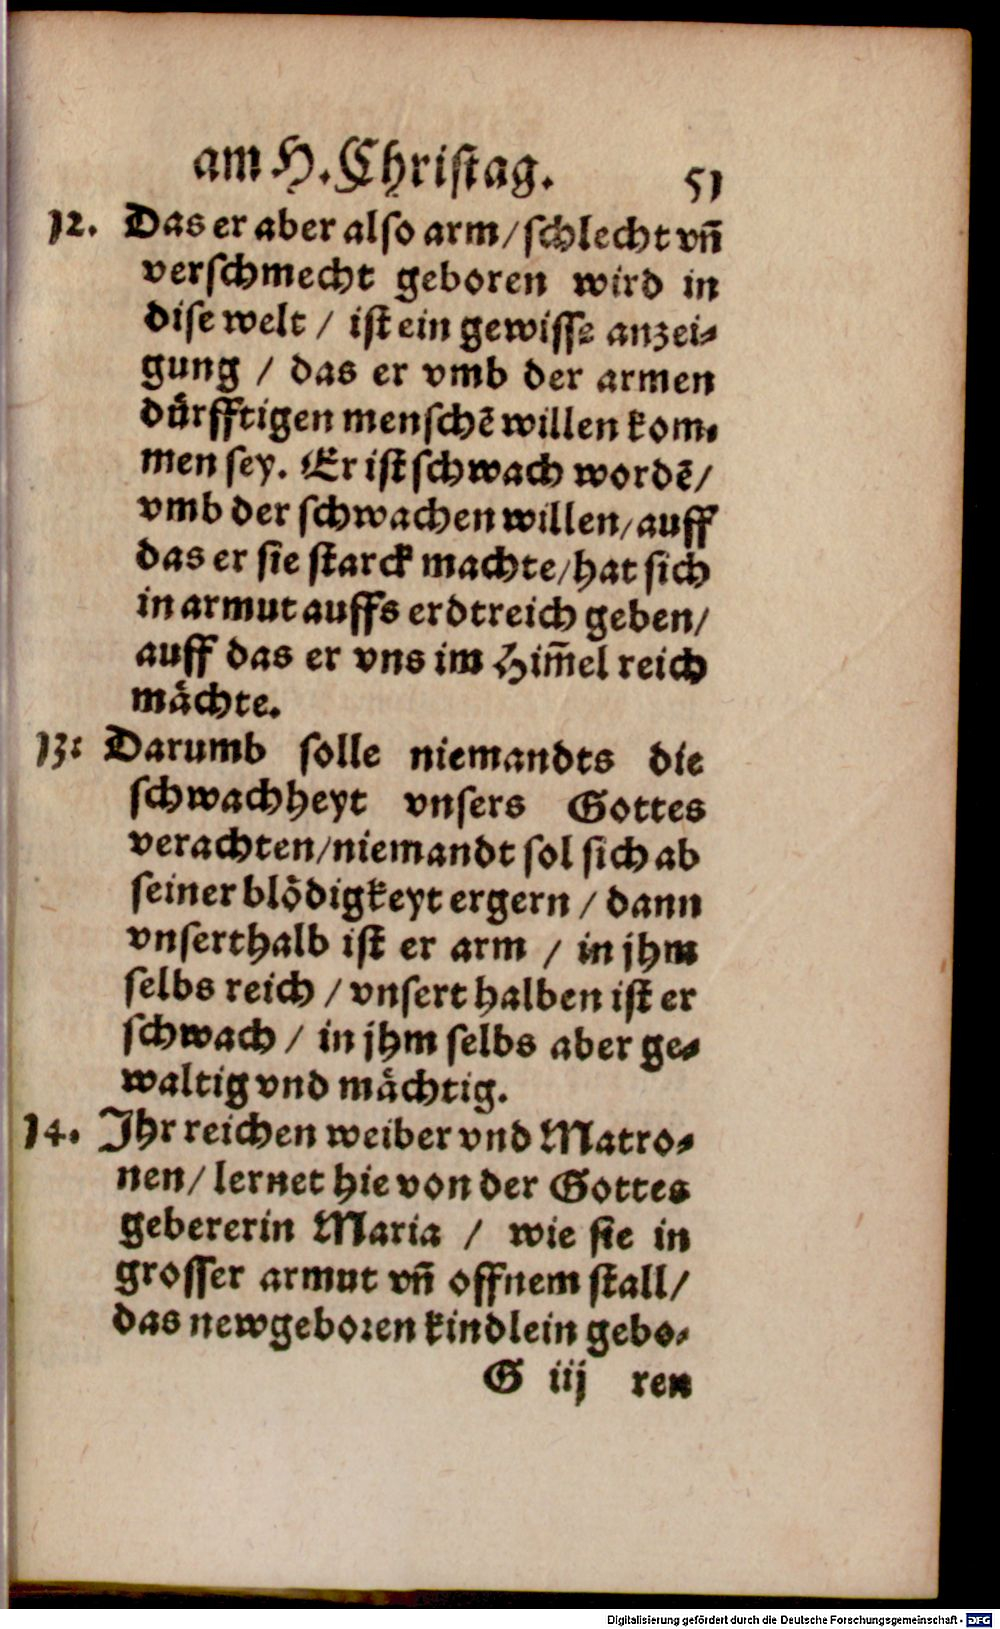 am H. Christag. 51
12. Das er aber also arm/schlecht vñ
verschmecht geboren wird in
dise welt / ist ein gewisse anzei⸗
gung / das er vmb der armen
dürfftigen menschẽ willen kom⸗
men sey. Er ist schwach wordẽ/
vmb der schwachen willen/auff
das er sie starck machte/hat sich
in armut auffs erdtreich geben/
auff das er vns im Him̃el reich
mächte.
13: Darumb solle niemandts die
schwachheyt vnsers Gottes
verachten/niemandt sol sich ab
seiner blödigkeyt ergern / dann
vnserthalb ist er arm / in jhm
selbs reich / vnsert halben ist er
schwach / in jhm selbs aber ge⸗
waltig vnd mächtig.
14. Ihr reichen weiber vnd Matro⸗
nen/ lernet hie von der Gottes
gebererin Maria / wie sie in
grosser armut vñ offnem stall/
das newgeboren kindlein gebo⸗
G iij ren
Digitalisierung gefördert durch die Deutsche Forschungsgemeinschaft - DFG